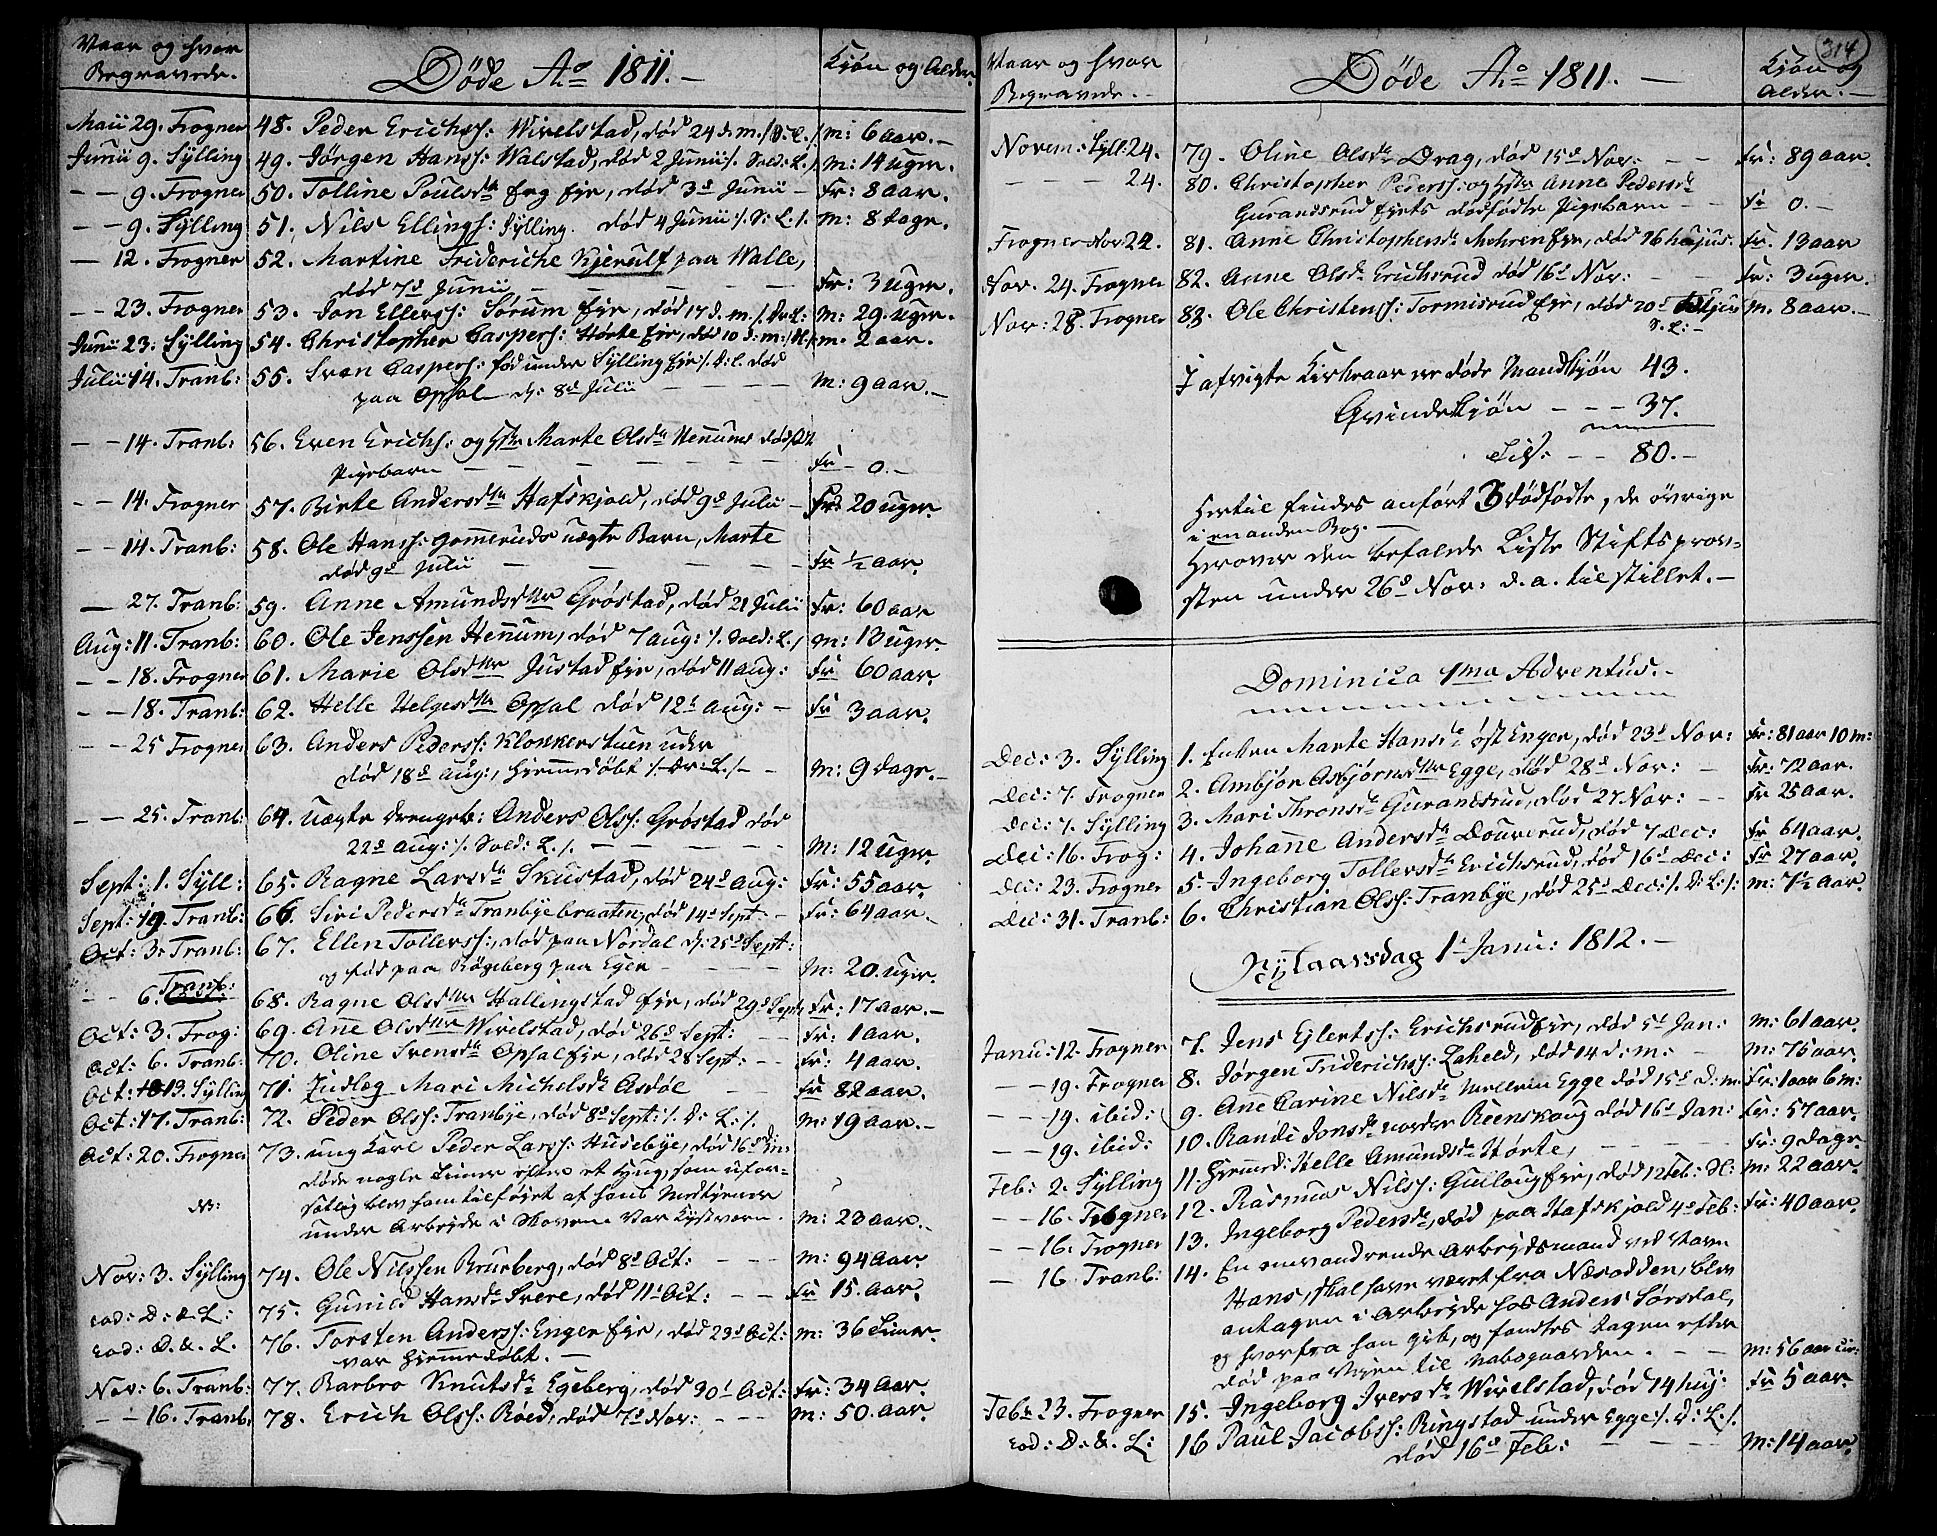 Naar og hvor
Begravede.
Døde Ao 1811.
Kjøn og Alder.
Maii 29. Frogner 48. Peder Erichs: Wivelstad, død 24 d. m. /: D: L. /. m: 6 aar.
Junii 9. Sylling 49. Jørgen Hanss: Walstad, død 2 Junii /. Sved: L. /. m: 14 uger.
— — 9. Frogner 50. Tolline Poulsdr Eeg Eje, død 3d Junii — Fr: 8 aar.
— — 9. Sylling 51. Nils Ellings: Sylling. død 4 Junii /. S: L. /. m: 8 dage.
— — 12. Frogner 52. Martine Frideriche Kjerulf paa Walle,
død 7d Junii — — — — Fr: 3 uger.
— — 23. Frogner 53. Jon Ellers: Sørum Eje, død 17 d. m. /. D: L: m: 29. uger.
Junii 23: Sylling 54. Christopher Caspers: Hørte Eje, død 10 d: m: m. 2 aar.
Julii 14. Tranb: 55. Sven Caspers: født under Sylling Eje /. D: L. død
paa Opsal d: 8d Julii — — — m: 9 aar.
— — 14. Tranb: 56. Even Erichs: og Hstr Marte Olsdr Henums dødf:
Pigebarn — — — — Fr — 0. —
— — 14. Frogner 57. Birte Andersdtr Hafskjold, død 9d Julii — Fr: 20 uger.
— — 14. Tranb: 58. Ole Hanss: Gomeruds uægte Barn, Marte
død 9d Julii — — — — Fr ½ aar.
— 27. Tranb: 59. Anne Amundsdtr Grøstad, død 21 Julii Fr: 60 aar
Aug: 11. Tranb: 60. Ole Jenssen Henum, død 7 Aug: /. Sved: L. / m: 13 uger.
— — 18. Frogner 61. Marie Olsdtr Justad Eje, død 11 Aug: Fr 60 aar.
— — 18. Tranb: 62. Helle Helgesdtr Opsal død 12t Aug: — Fr 3 aar.
— — 25 Frogner 63. Anders Peders: Klokkerstuen uder
død 18d Aug:, hjemmedøbt /. D: L. /. — m: 9 dage.
— — 25. Tranb: 64. Uægte Drengeb: Anders Ols: Grøstad død
22d Aug: /. Sved: L. /. — — — m: 12 uger.
Sept: 1. Syll: 65. Ragne Larsdr Skustad, død 24d Aug: Fr: 55 aar.
Sept: 19. Tranb: 66. Siri Pedersdr Tranbyebraaten, død 14d Sept — Fr: 64 aar.
Oct: 3. Tranb: 67. Ellen Tollerss:, død paa Nordal d: 25d Sept:
og fød paa Røgeberg paa Eger — — — m: 20. uger.
— — 6. Tranb: 68. Ragne Olsdtr Hallingstad Eje, død 29d Sept Fr: 17 aar.
Oct: 3. Frog: 69. Ane Olsdtr Wivelstad, død 26d Sept: — — Fr: 1 aar.
Oct: 6. Tranb: 70. Oline Svensdr Opsal Eje, død 28 Sept: — — Fr: 4 aar.
Oct: 13. Sylling 71. Indlæg Mari Michelsdr Asdøl — — Fr 82 aar.
Oct: 17. Tranb: 72. Peder Ols: Tranbye, død 8d Sept: /. D: L: /. m: 19 aar. —
Oct: 20. Frogner 73. ung Karl Peder Larss: Husebye, død 16d
døde nogle Timer efter et Hug, som ufor-
sætlig blev ham tilføjet af hans Medtjener
under Arbejde i Skoven. Var Kystværn. m: 23 aar.
NB:
Nov: 3. Sylling 74. Ole Nilssen Brurberg, død 8d Oct: — — — m: 94 aar.
eod: D: & L: 75. Gunild Hansdr Svere, død 11d Oct: — — Fr 15. aar.
eod: D. & L. 76. Torsten Anderss: Enger Eje, død 23d Oct: m: 36 Timer.
var hjemmedøbt. —
Nov: 6. Tranb: 77. Barbro Knutsdr Egeberg, død 30t Oct: Fr: 34 aar.
— — 16. Tranb: 78. Erich Ols: Røed, død 7d Nov: — — — m: 50. aar.
314
Naar og hvor
Begravede. —
Døde Ao 1811. —
Kjøn og
Alder. —
Novem: Syll: 24. 79. Oline Olsdr Drag, død 15d Nov: — — Fr: 89 aar.
— — — 24. 80. Christopher Peders: og Hstr Anne Pedersdr
Gurandsrud Ejets dødfødte Pigebarn — — Fr 0. —
Frogner Nov: 24. 81. Anne Christophersdr Mehren Eje, død 16 hujus. Fr. 13 aar
Nov. 24. Frogner 82. Anne Olsdr Erichsrud død 16d Nov: — — Fr: 3 uger.
Nov: 28. Frogner 83. Ole Christens: Tormisrud Eje, død 20d hujus m. 8 aar. —
D. L: —
I afvigte Kirkeaar ere døde Mandkjøn 43.
Qvindekjøn — — — 37.
Tils: — — 80. —
Hertil findes anført 3 dødfødte, de øvrige
i en anden Bog. —
Herover den befalede Liste Stiftsprov-
sten under 26d Nov: d. a. tilstillet. —
Dominica 1ma Adventus. —
Dec: 3. Sylling 1. Enken Marte Hansdr øst Enger, død 23d Nov: Fr: 81 aar 10 m:
Dec: 7. Frogner 2. Ambjør Asbjørnsdtr Egge, død 28d Nov: — Fr: 72 aar.
Dec: 7. Sylling 3. Mari Thronsdr Gurandsrud, død 27 Nov: — — Fr 25 aar.
Dec: 16. Frog: 4. Johane Andersdr Douverud, død 7 Dec: Fr 64 aar.
Dec: 23. Frogner 5. Ingeborg Tollersdr Erichsrud, død 16d Dec: Fr 27 aar.
Dec: 31. Tranb: 6. Christian Ols: Tranbye, død 25d Dec: /. D: L: /: m: 7½ aar.
Nytaarsdag 1d Janu: 1812. —
Janu: 12. Frogner 7. Jens Ejlerts: Erichsrud Eje, død 5d Jan: m: 61 aar.
— — 19. Frogner 8. Jørgen Friderichs: Lahell, død 14 d: m: — m: 75 aar.
— — 19. ibid: 9. Ane Carine Nilsdr mellem Egge død 15d d: m: Fr: 1 aar 6 m:
— — 19. ibid: 10. Randi Jonsdr norder Reenskoug død 16d Jan: Fr: 57 aar.
Feb: 2. Sylling 11. Hjemd: Helle Amundsdr Hørte, — — — Fr: 9 dage.
— — 16. Frogner 12. Rasmus Nils: Guiloug Eje, død 12 Feb: D: m: 22 aar.
— — 16. Frogner 13. Ingeborg Pedersdr, død paa Hafskjold 4d Feb: Fr: 40 aar.
— 16. Tranb: 14. En omvandrende Arbejdsmand ved Navn
Hans, skal have været fra Næsodden, blev
antagen i Arbejde hos Anders Sørsdal,
og hvorfra han gik, og fandtes dagen efter
død paa Vejen til Nabogaarden. — — m: 56 aar cir:
Feb: 23. Frogner 15. Ingeborg Iversdr Wivelstad, død 14 huj: Fr 5 aar.
eod: D: & L: 16 Paul Jacobs: Ringstad under Egge /. D: L. /.
død 16d Feb: — — — m: 14 aar.